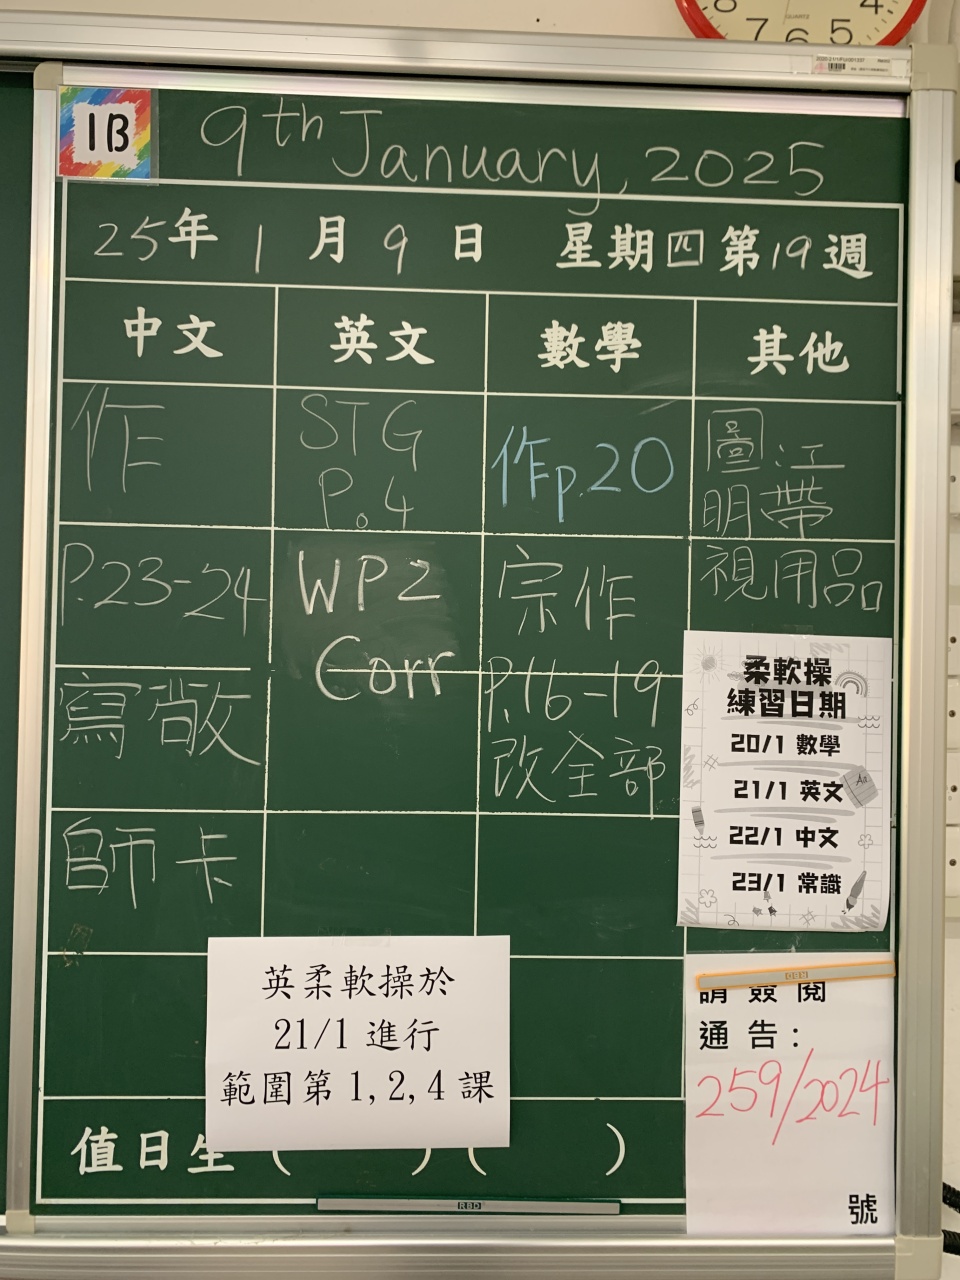 8 7 6 5 4
QUARTZ
1B
9th January, 2025
25年 1月 9日 星期四 第19週
中文 英文 數學 其他
作
P.23-24
寫敬
師卡
STG
P.4
WP2
Corr
作p.20
宗作
P.16-19
改全部
圖:工
明帶
視用品
柔軟操
練習日期
20/1 數學
21/1 英文
Aa
22/1 中文
23/1 常識
英柔軟操於
21/1 進行
範圍第 1, 2, 4 課
請簽閱
通告:
259/2024
號
值日生 ( ) ( )
RBD